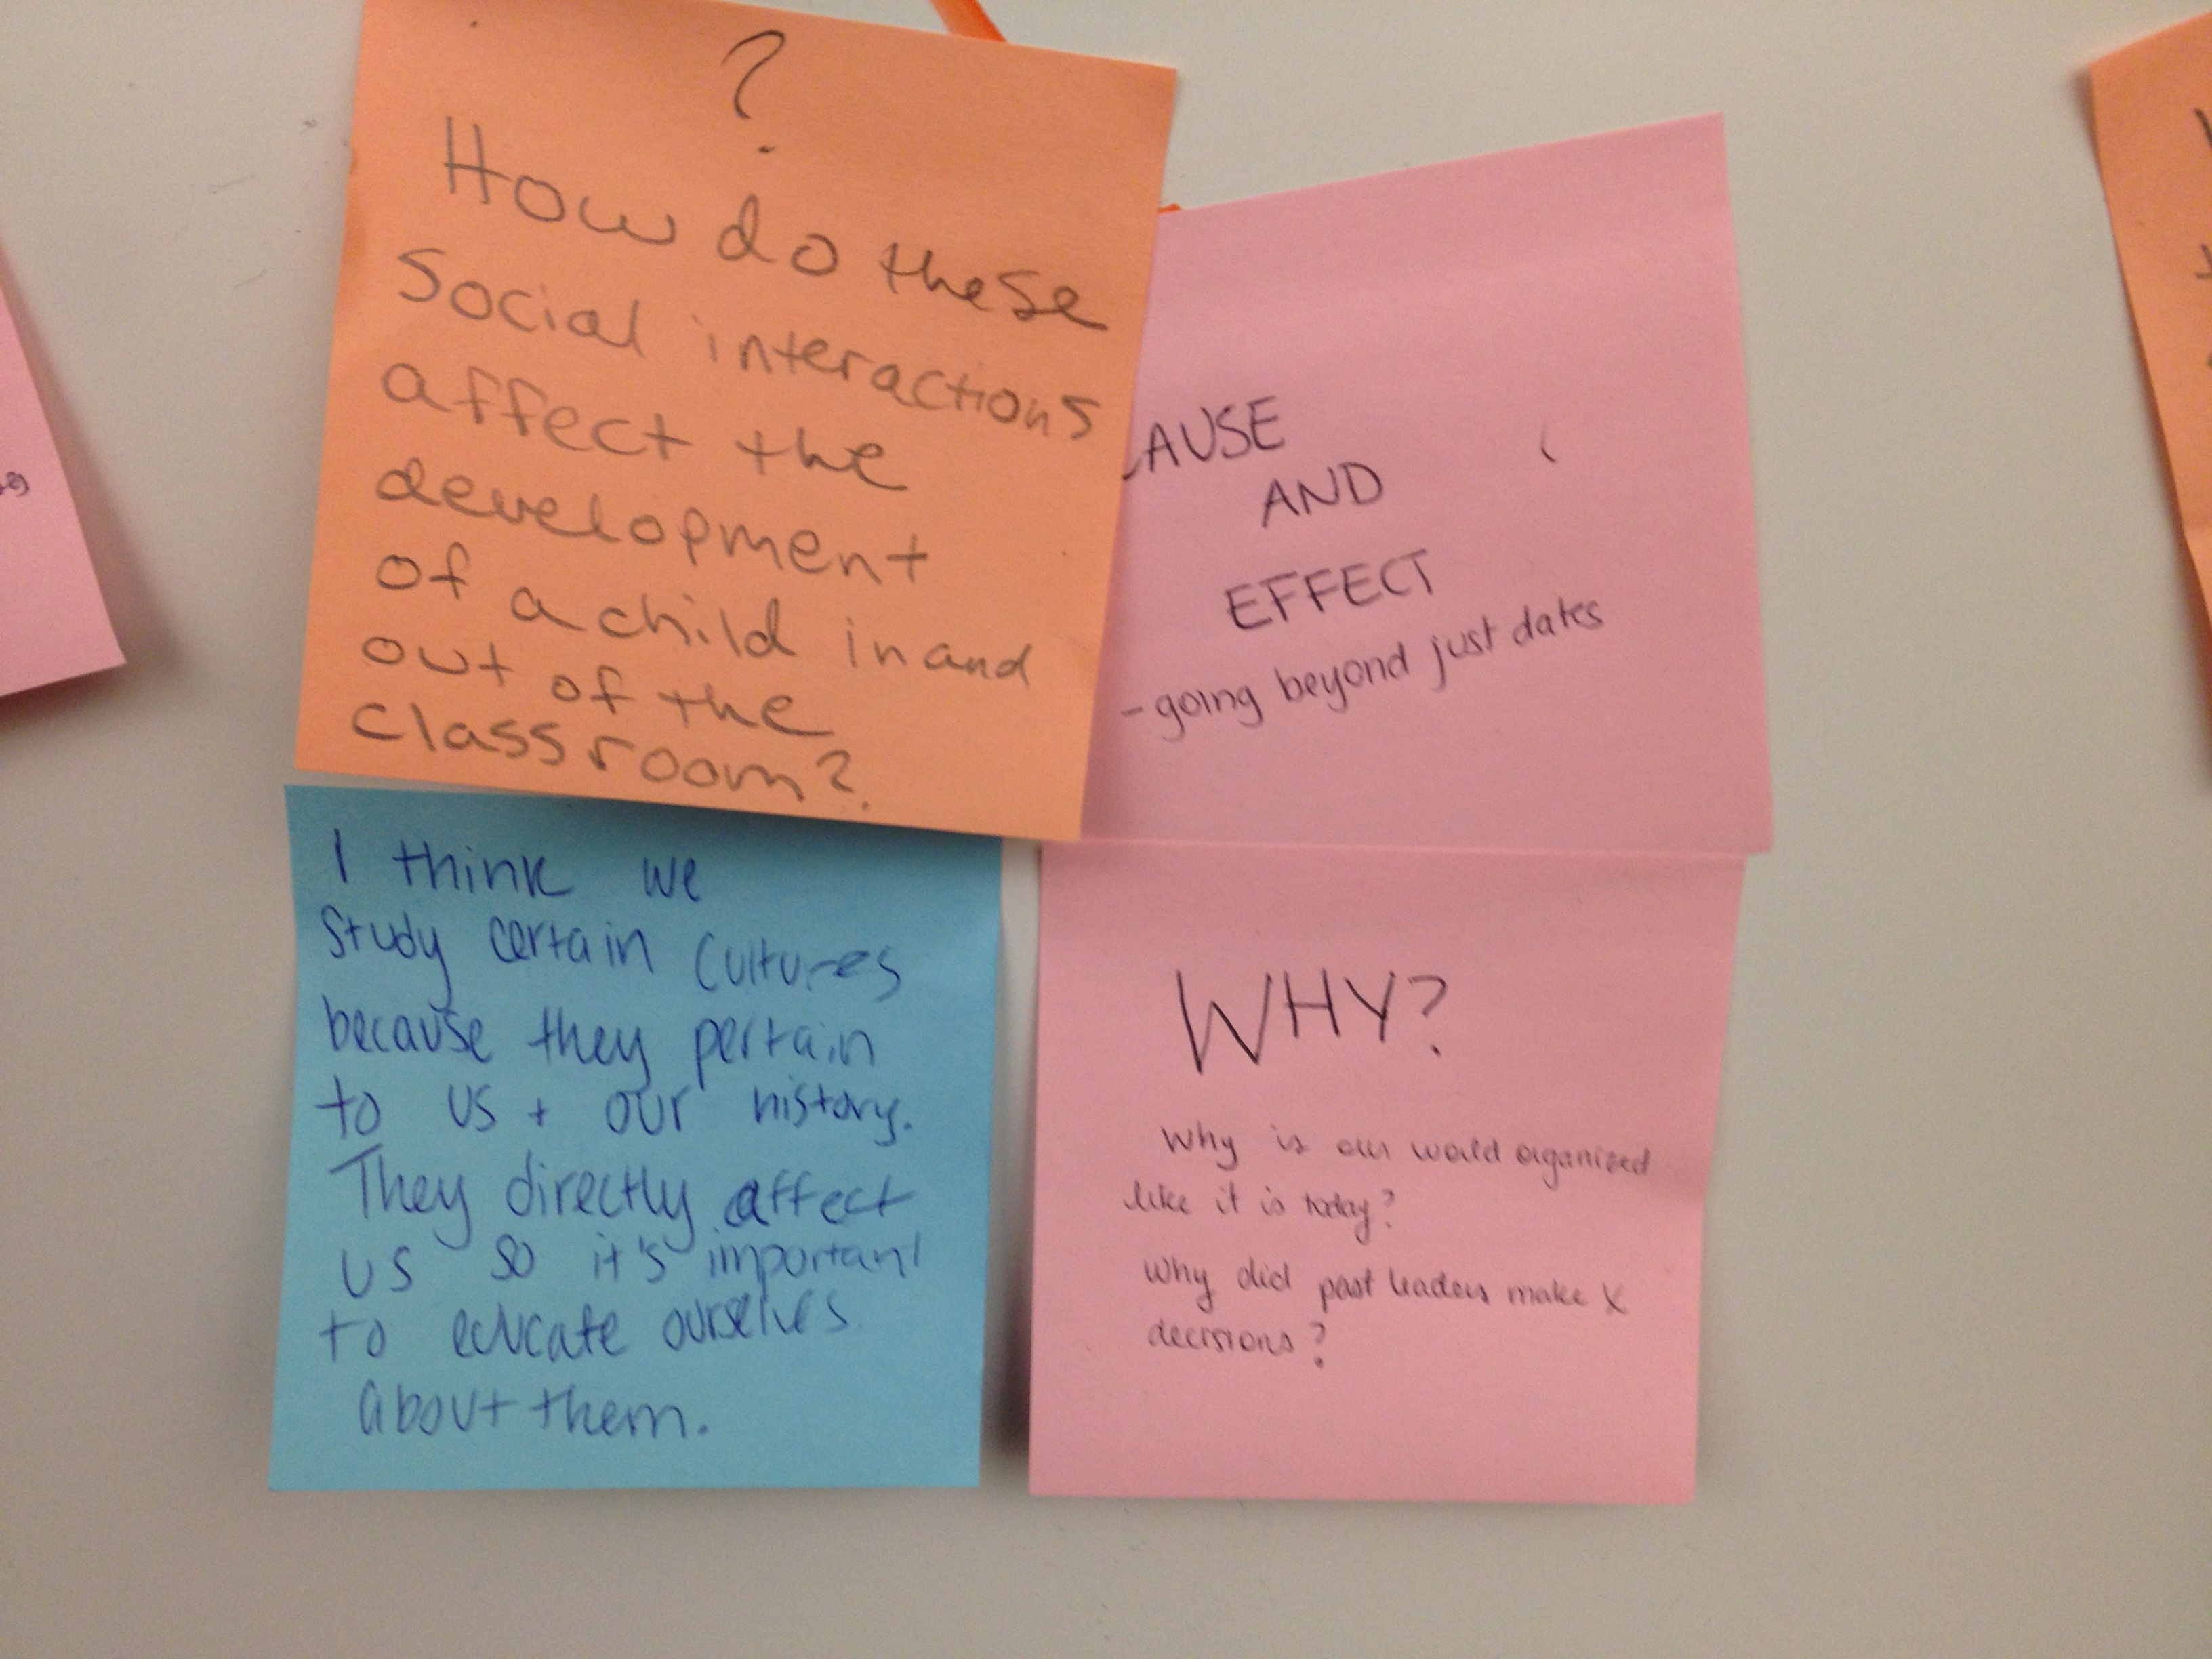 ?
How do these
Social interactions
affect the
development
of a child in and
out of the
classroom?
CAUSE
AND
EFFECT
- going beyond just dates
I think we
study certain cultures
because they pertain
to us + our history.
They directly affect
us so it's important
to educate ourselves
about them.
WHY?
Why is our world organized
like it is today?
Why did past leaders make X
decisions?